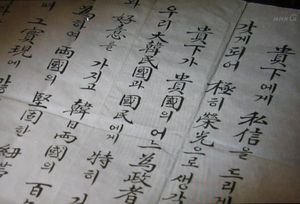 貴下에게 私信을 드리게
갖게되어 極히 榮光으로 생각
貴下가 貴國의 어느 為政者
우리 大韓民國과 國民에게 特히
와 好意를 가지고 韓日兩國의 百
為하여 兩國의 堅固한 紐帶
며 그 實現에
NHK G